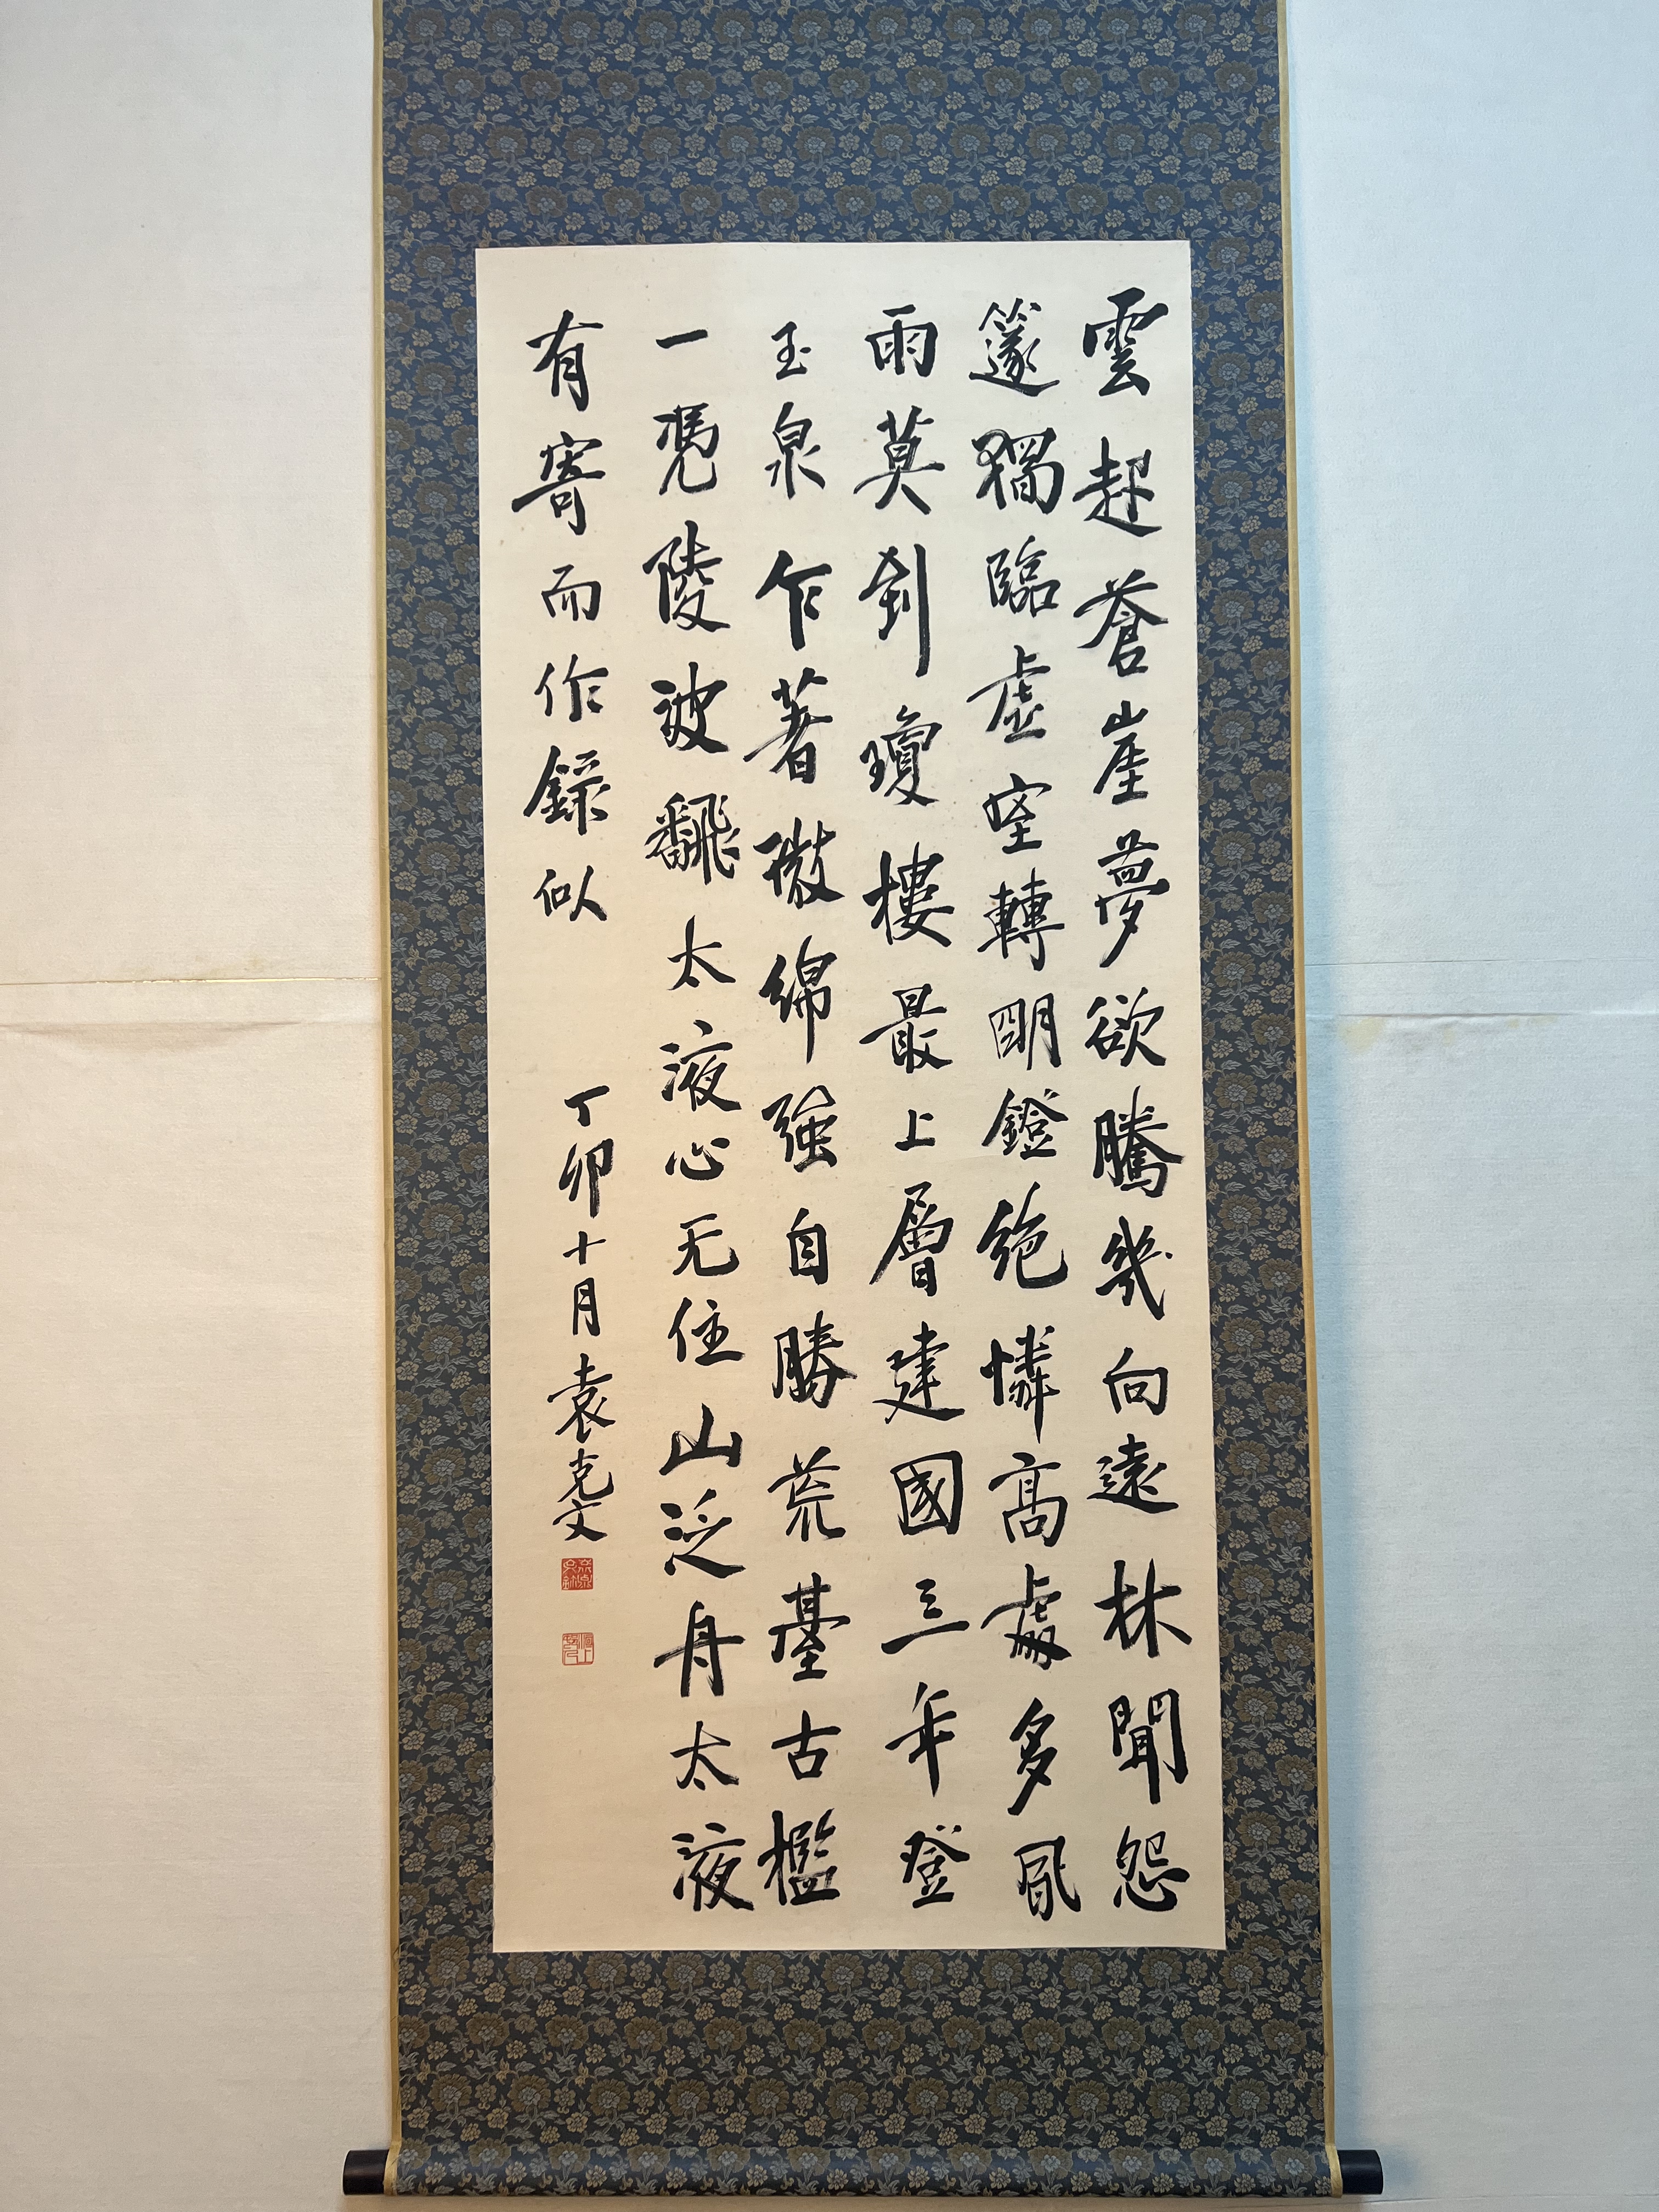 雲起蒼崖夢欲騰幾向遠林聞怨
篴獨臨虛室轉明鐙絶憐高處多風
雨莫到瓊樓最上層建國三年登
玉泉乍著微綿強自勝荒臺古檻
一凭陵波飜太液心无住山泛舟太液
有寄而作錄似
丁卯十月袁克文